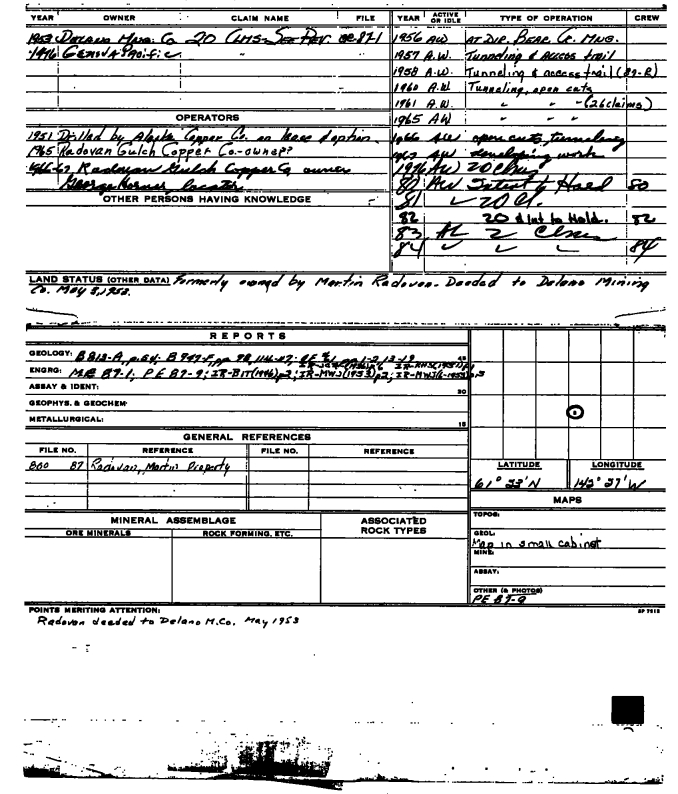 YEAR OWNER CLAIM NAME FILE
1953 Delano Mng. Co 20 Clms-See Rev.
1976 Geno & Pacific "
OPERATORS
1951 Drilled by Alaska Copper Co. on lease & option.
1965 Radovan Gulch Copper Co.-owner??
1966-67 Radovan Gulch Copper Co owner
George locator
OTHER PERSONS HAVING KNOWLEDGE
YEAR ACTIVE OR IDLE TYPE OF OPERATION CREW
1956 AW AT DIP. BEAR CR. MNG.
1957 A.W. Tunneling & access trail
1958 A.W. Tunneling & access trail (87-R)
1960 A.W. Tunneling, open cuts
1961 A.W. " " " (26 claims)
1965 AW " " "
1966 AW open cuts, tunneling
1967 AW developing work
1976 AW 20 Clms
80 AW Intent to Hold 80
81 ✓ 20 Cl.
82 20 & Int to Hold. 82
83 AL 2 Clms
84 ✓ ✓ ✓ 84
LAND STATUS (OTHER DATA) Formerly owned by Martin Radovan. Deeded to Delano Mining
Co. May 5, 1953.
REPORTS
GEOLOGY: B 813-A,
ENGRG: M.R 87-1; PE 87-9; IR-BIT(1946)p2; IR-MWJ(1953)p2; IR-MWJ(6-1953)
ASSAY & IDENT:
GEOPHYS. & GEOCHEM:
METALLURGICAL:
GENERAL REFERENCES
FILE NO. REFERENCE FILE NO. REFERENCE
800 87 Radovan, Martin Property
MINERAL ASSEMBLAGE
ORE MINERALS ROCK FORMING, ETC.
ASSOCIATED ROCK TYPES
LATITUDE LONGITUDE
61° N 143° W
MAPS
TOPOG:
GEOL:
Map in small cabinet
MINE:
ASSAY:
OTHER (& PHOTOS)
PE 87-9
POINTS MERITING ATTENTION:
Radovan deeded to Delano M.Co. May 1953